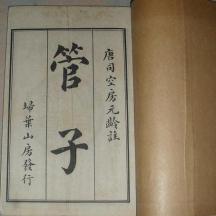 唐司空房元齡註
管子
埽葉山房發行